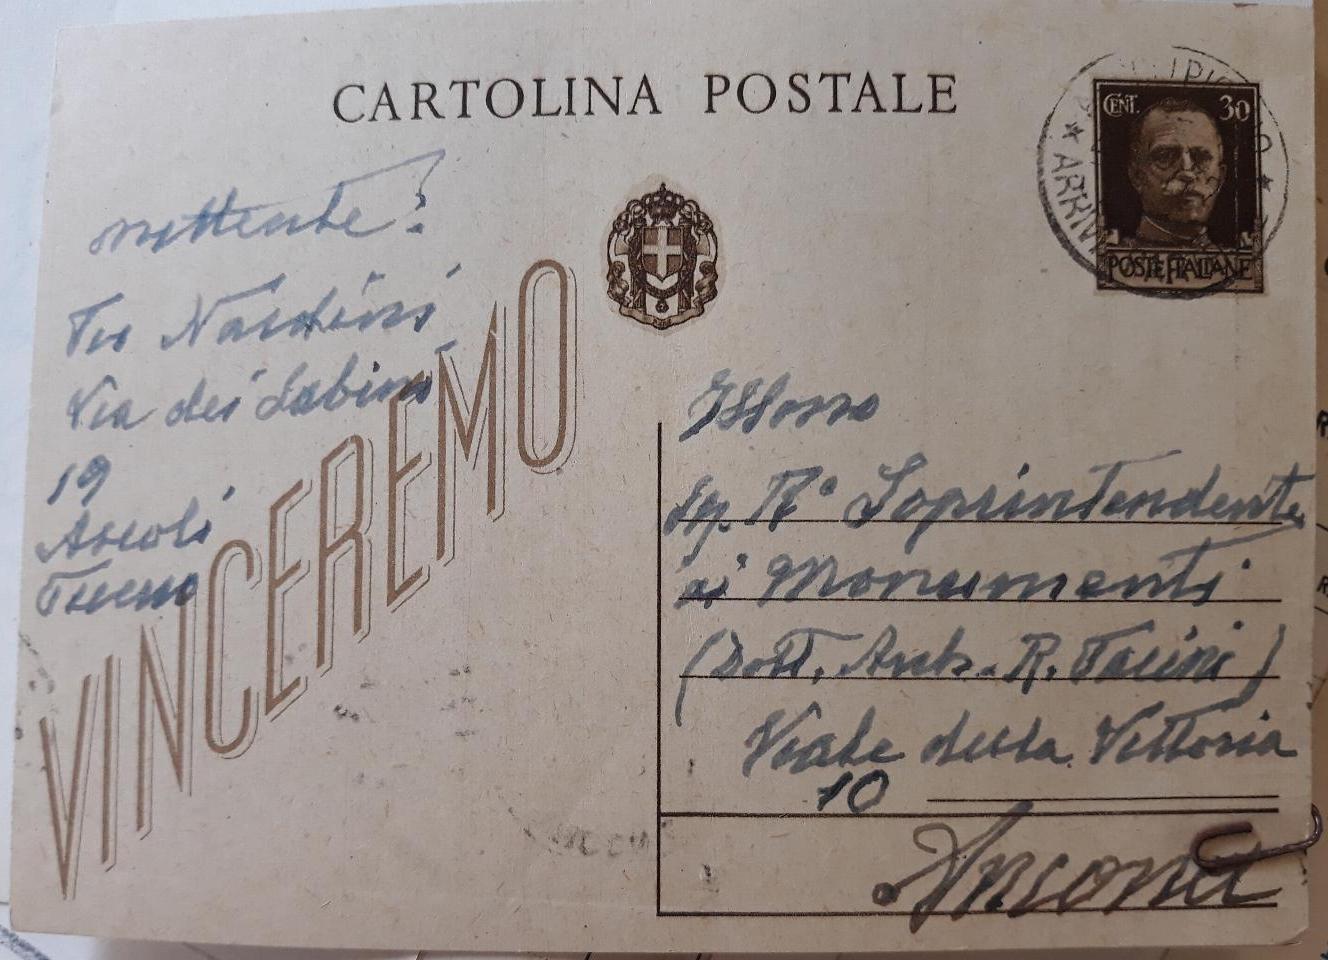 CARTOLINA POSTALE
CENT. 30
POSTE ITALIANE
ARRIVI
mittente:
Nardini
Via dei Sabini
19
Ascoli
Piceno
VINCEREMO
Ill.mo
Sig. R° Soprintendente
ai Monumenti
(Dott. Arch. R. Pacini)
Viale della Vittoria
10
Ancona